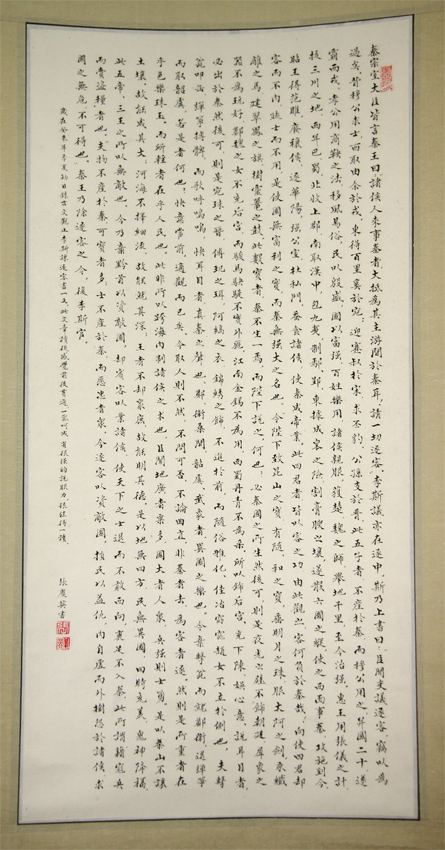 秦宗室大臣皆言秦王曰，諸侯人來事秦者，大抵為其主游間於秦耳，請一切逐客。李斯議亦在逐中，斯乃上書曰，臣聞吏議逐客，竊以為
過矣。昔穆公求士，西取由余於戎，東得百里奚於宛，迎蹇叔於宋，求丕豹、公孫支於晉，此五子者，不產於秦，而穆公用之，并國二十，遂
霸西戎。孝公用商鞅之法，移風易俗，民以殷盛，國以富強，百姓樂用，諸侯親服，獲楚、魏之師，舉地千里，至今治強。惠王用張儀之計，
拔三川之地，西并巴蜀，北收上郡，南取漢中，包九夷，制鄢、郢，東據成皋之險，割膏腴之壤，遂散六國之縱，使之西面事秦，功施到今。
昭王得范雎，廢穰侯，逐華陽，強公室，杜私門，蠶食諸侯，使秦成帝業。此四君者，皆以客之功。由此觀之，客何負於秦哉！向使四君卻
客而不內，疏士而不用，是使國無富利之實，而秦無強大之名也。今陛下致昆山之寶，有隨、和之寶，垂明月之珠，服太阿之劍，乘纖
離之馬，建翠鳳之旗，樹靈鼉之鼓。此數寶者，秦不生一焉，而陛下說之，何也。必秦國之所生然後可，則是夜光之璧不飾朝廷，犀象之
器不為玩好，鄭魏之女不充后宮，而駿馬駃騠不實外廄，江南金錫不為用，西蜀丹青不為采。所以飾后宮，充下陳，娛心意，說耳目者，
必出於秦然後可，則是宛珠之簪，傅璣之珥，阿縞之衣，錦繡之飾，不進於前，而隨俗雅化，佳冶窈窕趙女不立於側也。夫擊
甕叩缶，彈箏搏髀，而歌呼嗚嗚，快耳目者，真秦之聲也。鄭衛桑間，韶虞、武象者，異國之樂也。今棄擊甕而就鄭衛，退彈箏
而取韶虞，若是者何也，快意當前，適觀而已矣。今取人則不然，不問可否，不論曲直，非秦者去，為客者逐，然則是所重者在
乎色樂珠玉，而所輕者在乎人民也。此非所以跨海內制諸侯之術也。臣聞地廣者粟多，國大者人眾，兵強則士勇，是以泰山不讓
土壤，故能成其大，河海不擇細流，故能就其深，王者不卻眾庶，故能明其德，是以地無四方，民無異國，四時充美，鬼神降福，
此五帝、三王之所以無敵也。今乃棄黔首以資敵國，卻賓客以業諸侯，使天下之士退而不敢西向，裹足不入秦，此所謂藉寇兵
而齎盜糧者也。夫物不產於秦，可寶者多，士不產於秦，而願忠者眾。今逐客以資敵國，損民以益仇，內自虛而外樹怨於諸侯，求
國之無危，不可得也。秦王乃除逐客之令，復李斯官。
歲在癸未年季夏初日錄古文觀止李斯諫逐客書一文，此文章讀後感覺前後貫通一氣呵成，有很強的說服力，很值得一讀。
張慶英書